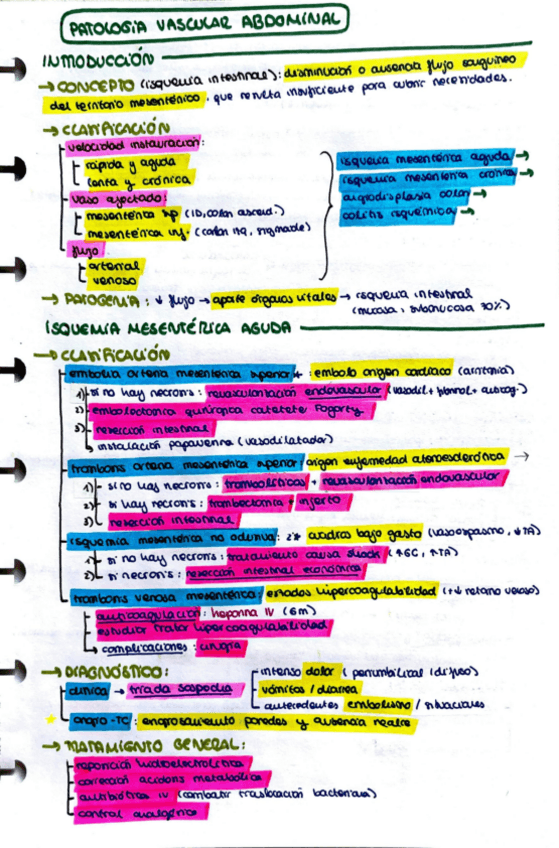 PATOLOGÍA VASCULAR ABDOMINAL
INTRODUCCIÓN
→ CONCEPTO (isquemia intestinal): disminución o ausencia flujo sanguíneo
del territorio mesentérico, que resulta insuficiente para cubrir necesidades.
→ CLASIFICACIÓN
velocidad instauración:
rápida y aguda
lenta y crónica
vaso afectado:
mesentérica sup (ID, colon ascend.)
mesentérica inf. (colon izq, sigmoide)
flujo
arterial
venoso
isquemia mesentérica aguda →
isquemia mesentérica crónica →
angiodisplasia colon →
colitis isquémica →
→ PATOGENIA: ↓ flujo → aporte órganos vitales → isquemia intestinal
(mucosa, submucosa 70%)
ISQUEMIA MESENTÉRICA AGUDA
→ CLASIFICACIÓN
embolia arteria mesentérica superior*: émbolo origen cardíaco (arritmia)
1) si no hay necrosis: revascularización endovascular (vasodil + fibrinol +
2) embolectomía quirúrgica catéter Fogarty
3) resección intestinal
instalación papaverina (vasodilatador)
trombosis arteria mesentérica superior: origen enfermedad ateroesclerótica →
1) si no hay necrosis: trombolíticos + revascularización endovascular
2) si hay necrosis: trombectomía + injerto
3) resección intestinal
isquemia mesentérica no oclusiva: 2º cuadros bajo gasto (vasoespasmo, ↓TA)
1) si no hay necrosis: tratamiento causa shock (↑GC, ↑TA)
2) si necrosis: resección intestinal económica
trombosis venosa mesentérica: estados hipercoagulabilidad (↓ retorno venoso)
anticoagulación: heparina IV (6m)
estudiar tratar hipercoagulabilidad
complicaciones: cirugía
→ DIAGNÓSTICO:
clínica → tríada sospecha
intenso dolor (periumbilical (difuso)
vómitos / diarrea
antecedentes embolismo /
angio-TC: engrosamiento paredes y ausencia realce
→ TRATAMIENTO GENERAL:
reposición hidroelectrolítica
corrección acidosis metabólica
antibiótico IV (combatir traslocación bacteriana)
control analgésico